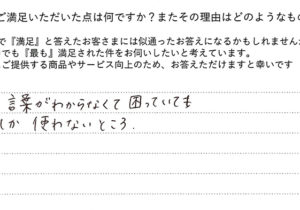 ご満足いただいた点は何ですか？またその理由はどのようなもの
で『満足』と答えたお客さまには似通ったお答えになるかもしれません
でも『最も』満足された件をお伺いしたいと考えています。
ご提供する商品やサービス向上のため、お答えいただけますと幸いです
言葉がわからなくて困っていても
しか使わないところ.